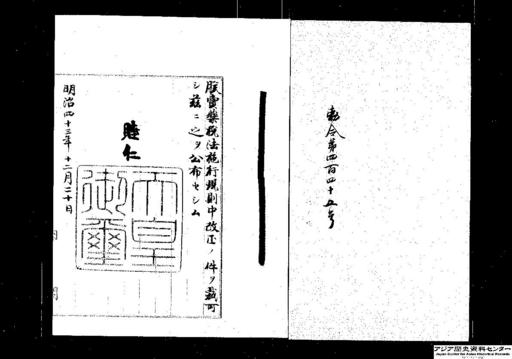 勅令第四百四十五号
朕賣藥税法施行規則中改正ノ件ヲ裁可
シ茲ニ之ヲ公布セシム
睦仁
天皇
御璽
明治四十三年十二月二十日
アジア歴史資料センター
Japan Center for Asian Historical Records